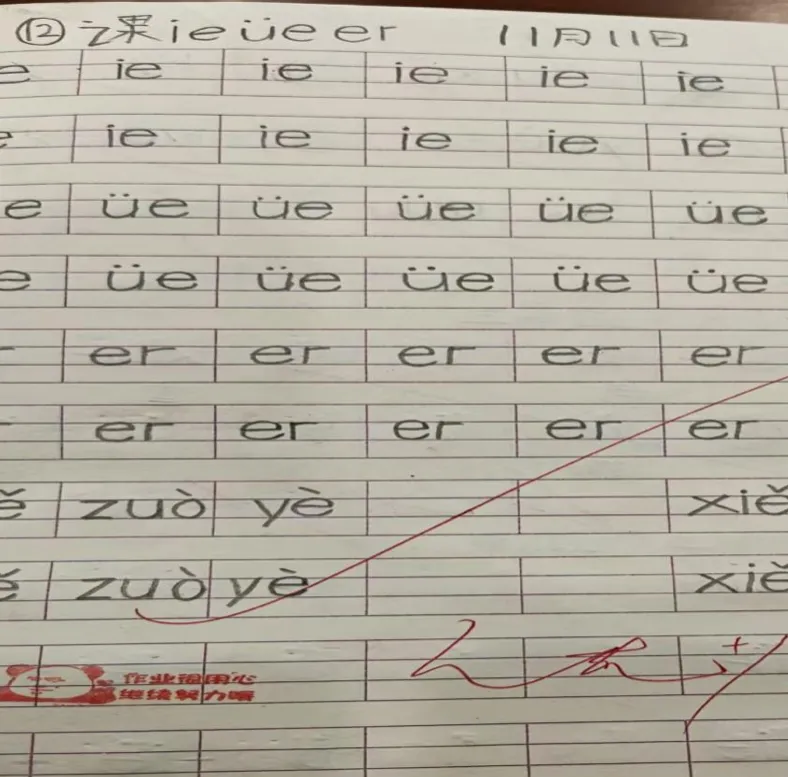 ⑫ 课 ie üe er 11月11日
e ie ie ie ie ie
e ie ie ie ie ie
e üe üe üe üe üe
e üe üe üe üe üe
er er er er er
er er er er er
ě zuò yè xiě
ě zuò yè xiě
作业很用心
继续努力哦